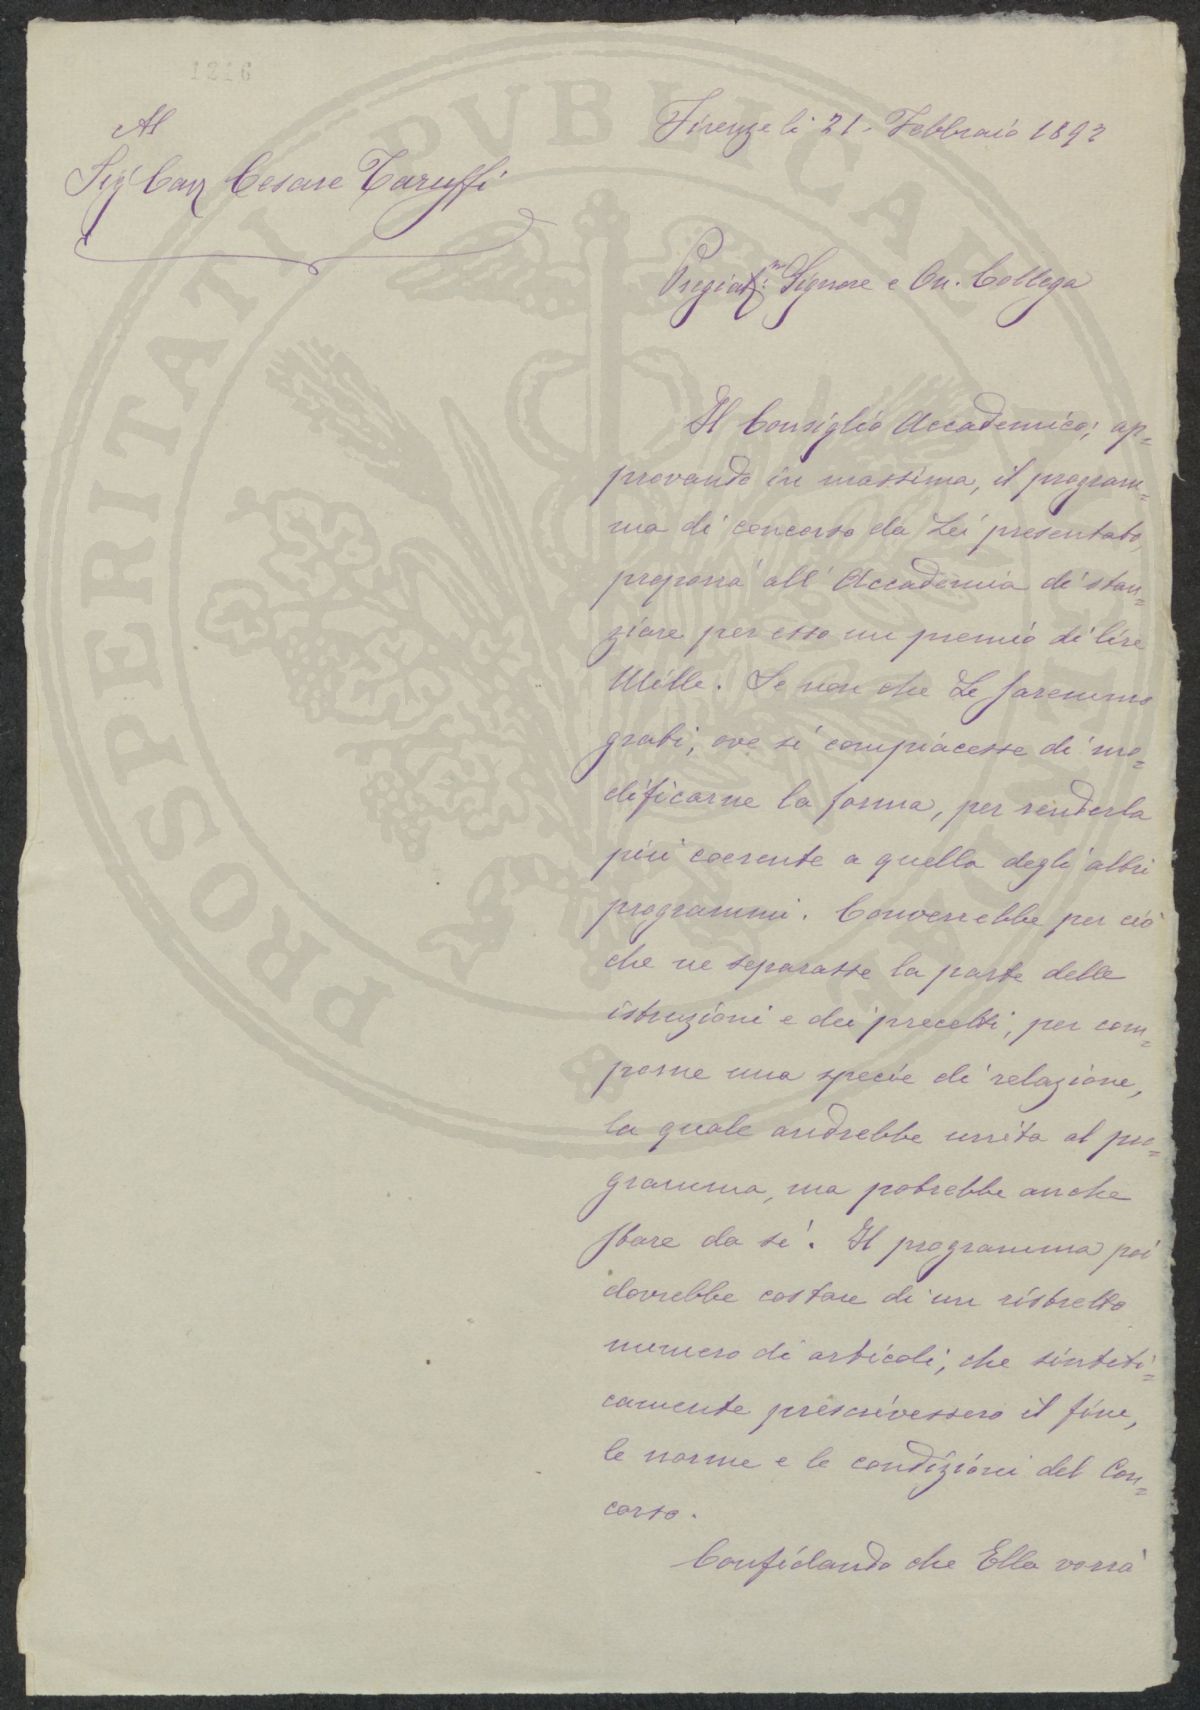 1216
Firenze li 21. Febbraio 1893
Al
Sig Cav Cesare Taruffi
Pregiat.mo Signore e On. Collega
Il Consiglio Accademico, ap=
provando in massima, il program=
ma di concorso da Lei presentato,
proporrà all' Accademia di stan=
ziare per esso un premio di lire
Mille. Se non che Le saremmo
grati, ove si compiacesse di mo=
dificarne la forma, per renderla
più coerente a quella degli altri
programmi. Converrebbe per ciò
che ne separasse la parte delle
istruzioni e dei precetti, per com=
porne una specie di relazione,
la quale andrebbe unita al pro=
gramma, ma potrebbe anche
stare da sé. Il programma poi
dovrebbe costare di un ristretto
numero di articoli, che sinteti=
camente prescrivessero il fine,
le norme e le condizioni del Con=
corso.
Confidando che Ella vorrà
PROSPERITATI PVBLICAE